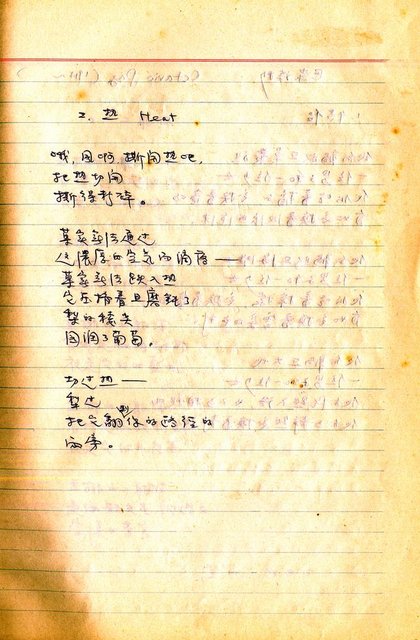 2. 热 Heat
哦,风啊 撕开热吧,
把热切开
撕得粉碎。
果实无法通过
这浓厚的空气而滴落——
果实无法跌入热
它压挤着且磨钝了
梨的棱尖
圆润了葡萄。
切过热——
犁过
把它翻到你的路径的
两旁。